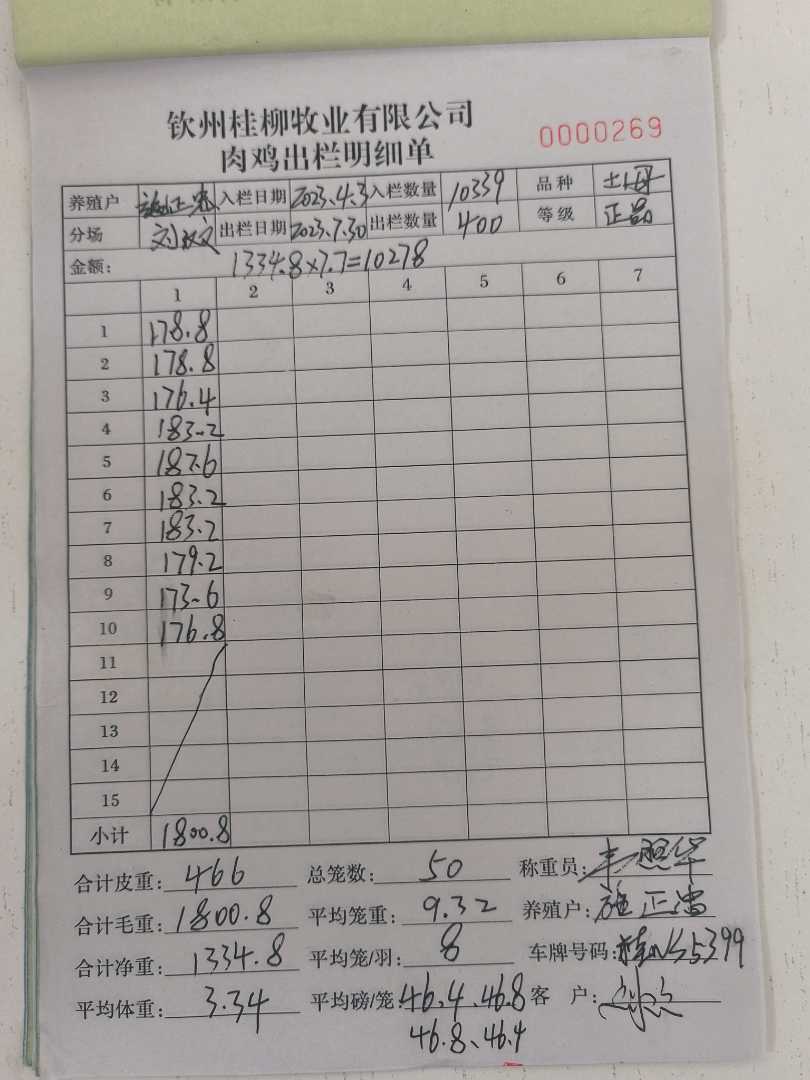 钦州桂柳牧业有限公司
肉鸡出栏明细单
0000269
养殖户 施正忠 入栏日期 2023.4.3 入栏数量 10339 品种 土母
分场 出栏日期 2023.7.30 出栏数量 400 等级 正品
金额: 1334.8×7.7=10278
1 2 3 4 5 6 7
1 178.8
2 178.8
3 176.4
4 183.2
5 187.6
6 183.2
7 183.2
8 179.2
9 173.6
10 176.8
11
12
13
14
15
小计 1800.8
合计皮重: 466 总笼数: 50 称重员:
合计毛重: 1800.8 平均笼重: 9.32 养殖户: 施正忠
合计净重: 1334.8 平均笼/羽: 8 车牌号码:
平均体重: 3.34 平均磅/笼: 46.4、46.8 客 户:
46.8、46.4